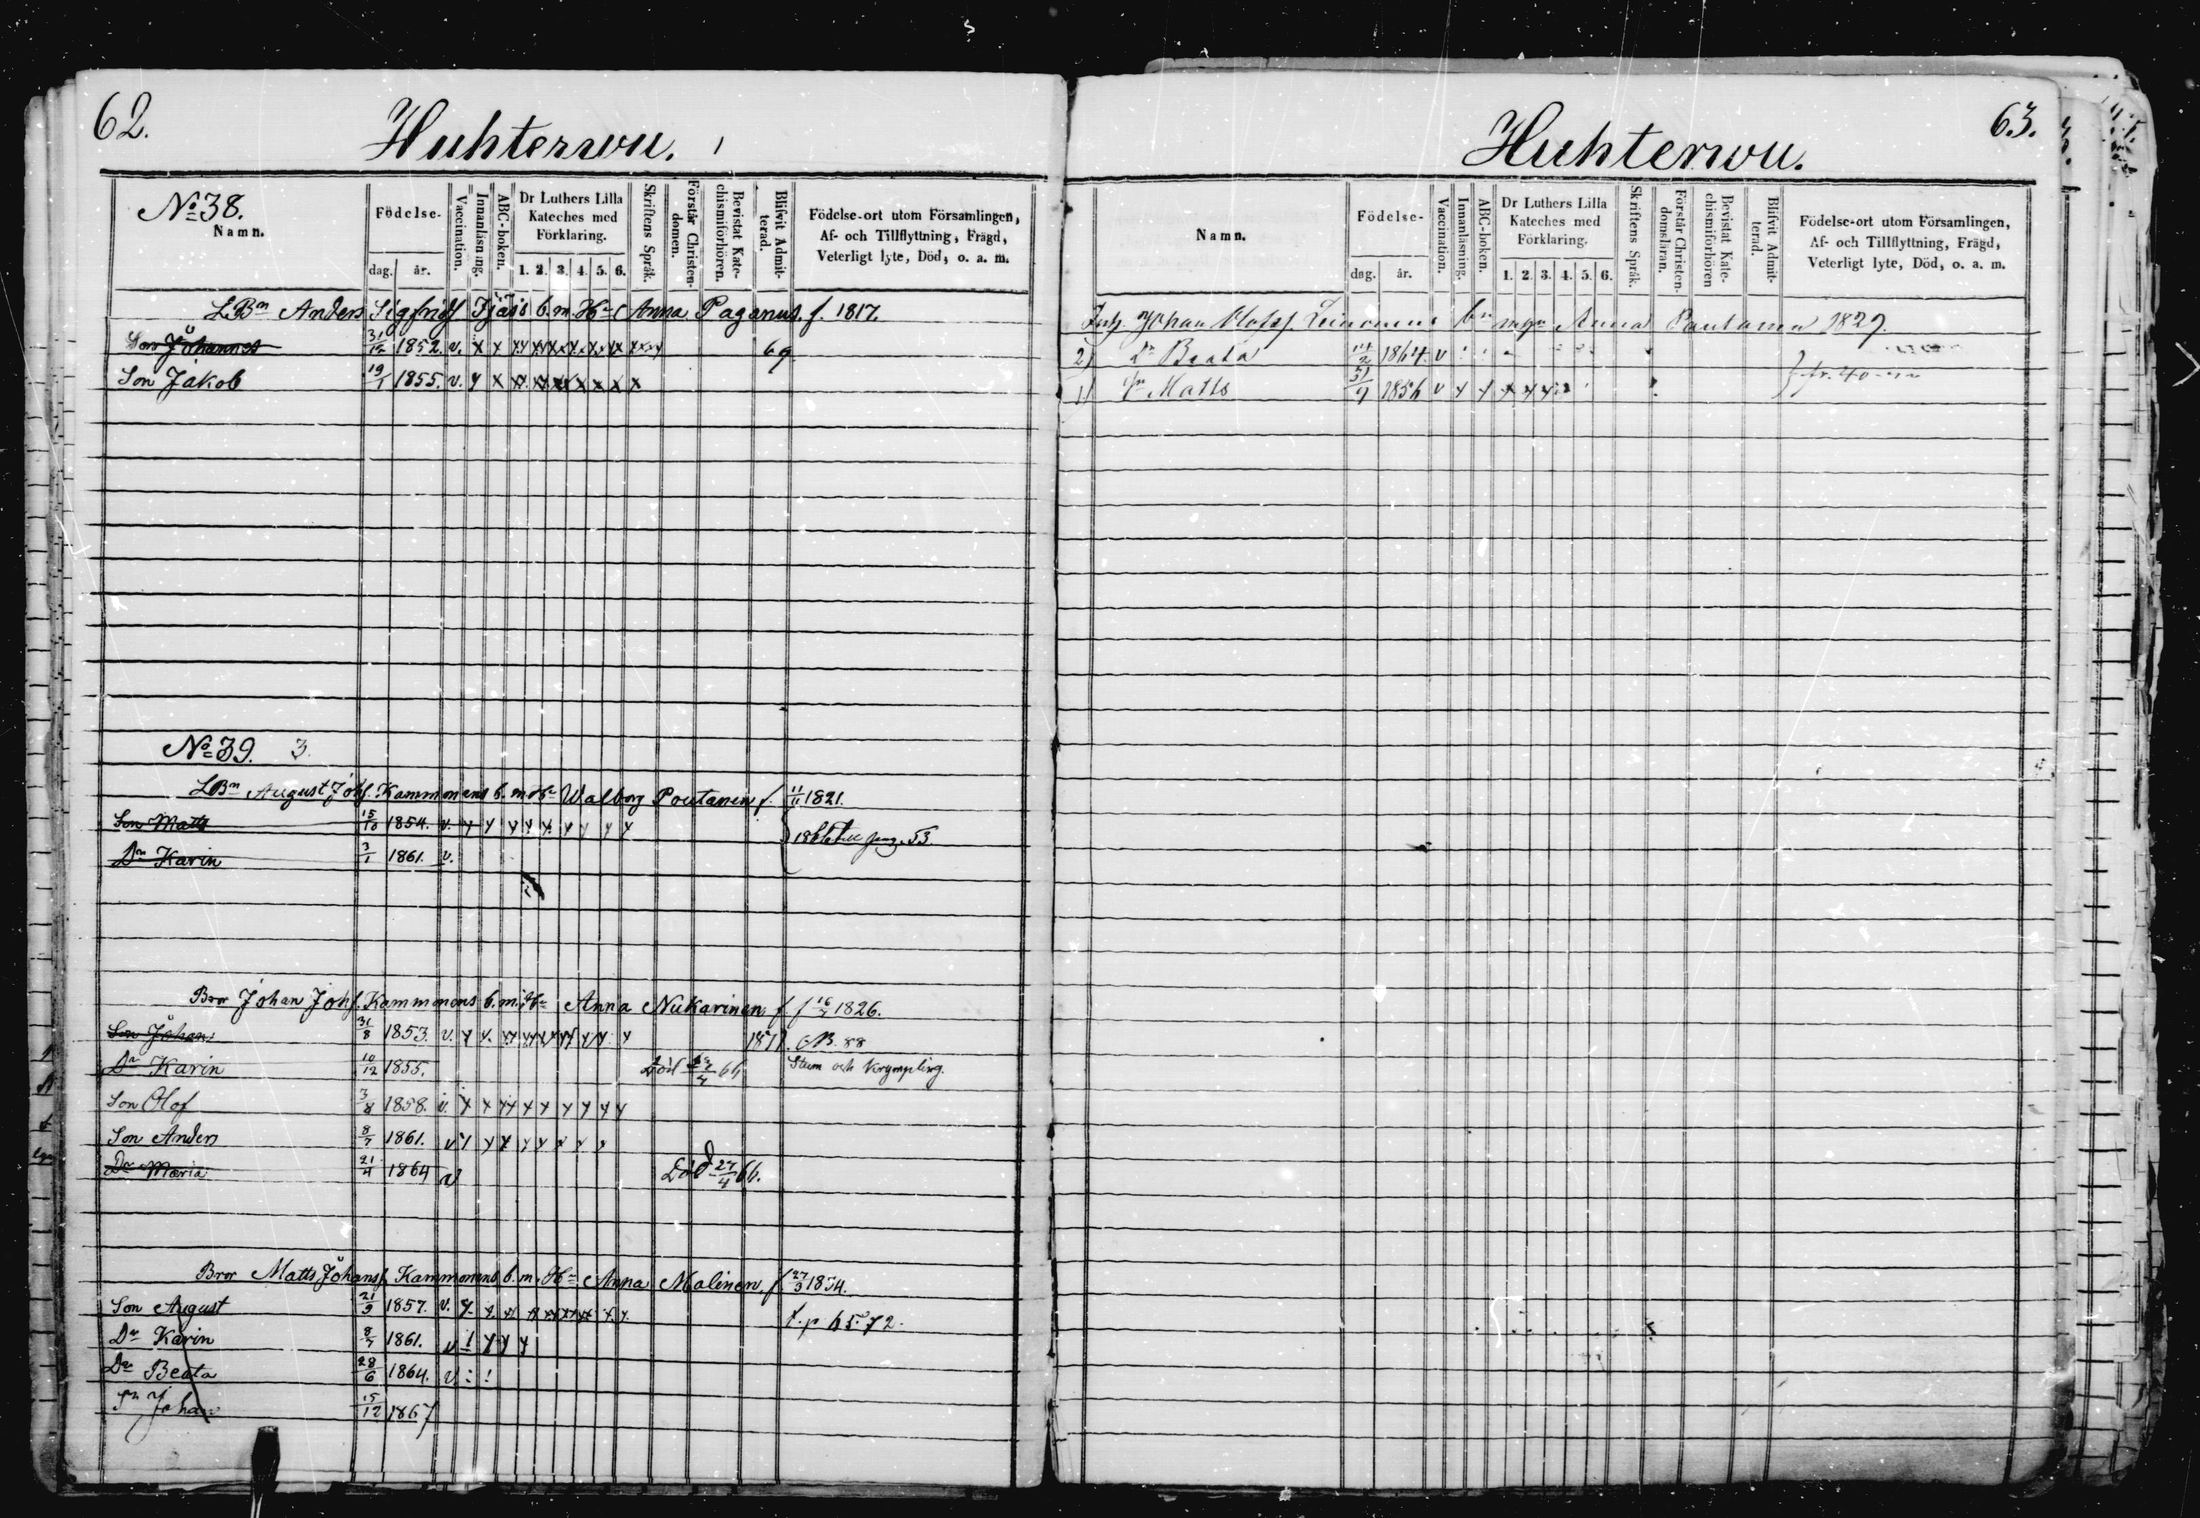 62.
Huhterwu.
No 38.
Namn.
Födelse-
dag. år.
Vaccination.
Innanläsning.
ABC-boken.
Dr Luthers Lilla
Kateches med
Förklaring.
1. 2. 3. 4. 5. 6.
Skriftens Språk.
Förstår Christen-
domen.
Bevistat Kate-
chismiförhören.
Blifvit Admit-
terad.
Födelse-ort utom Församlingen,
Af- och Tillflyttning, Frägd,
Veterligt lyte, Död, o. a. m.
LBn Anders Sigfridsf b. m. Hu Anna Paganus f. 1817.
Son Johannes 31/12 1852. v. x x xx xx xx x x x x 69
Son Jakob 19/1 1855. v. y x xx xx xx x x x x
No 39. 3.
LBn August Johsf. Kammonens b. m. Hu Walborg Poutanen f. 11/11 1821.
Son Matts 15/10 1854. v. y y y y y y y y y
Dr Karin 3/1 1861. v.
pag. 53
Bror Johan Johsf. Kammonens b. m. Hu Anna Nukarinen f. 1826.
Son Johan 31/8 1853. v. y v. CB. 88
Dr Karin 10/12 1855. Död 66 Stum och Krympling.
Son Olof 3/8 1858. v. y x yy x y y y y y
Son Anders 8/7 1861. v y y x y y x y y
Dr Maria 21/4 1864 v Död 27/4 66.
Bror Matts Johansf. Kammonens b. m. Hu Anna Malinen f. 27/3 1834.
Son August 21/9 1857. v. y. f. p 65. 72.
Dr Karin 8/7 1861. v ! y y y
Dr Beata 28/6 1864. v : !
Sn Johan 15/12 1867
63.
Huhterwu.
Namn.
Födelse-
dag. år.
Vaccination.
Innanläsning.
ABC-boken.
Dr Luthers Lilla
Kateches med
Förklaring.
1. 2. 3. 4. 5. 6.
Skriftens Språk.
Förstår Christen-
domsläran.
Bevistat Kate-
chismiförhören
Blifvit Admit-
terad.
Födelse-ort utom Församlingen,
Af- och Tillflyttning, Frägd,
Veterligt lyte, Död, o. a. m.
Johan Olofsf. Leinonens Anna Pautanen 1829.
2) Dr Beata 1864. v
1) Sn Matts 1856 v y y x y y fr. 40